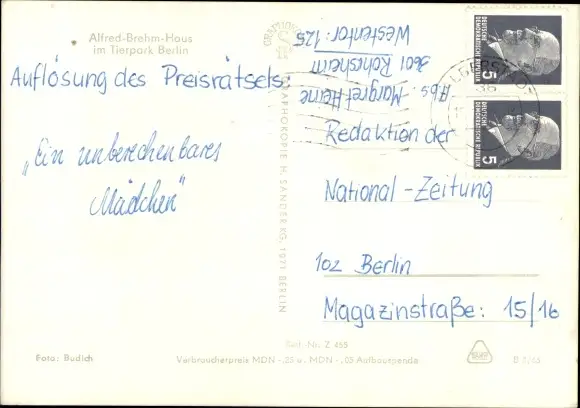 Alfred-Brehm-Haus
im Tierpark Berlin
Auflösung des Preisrätsels:
„Ein unberechenbares
Mädchen"
Foto: Budich
Abs.: Margret Heine
3601 Rohrsheim
Westentor: 125
DEUTSCHE
DEMOKRATISCHE REPUBLIK
5
DEUTSCHE
DEMOKRATISCHE REPUBLIK
5
Redaktion der
National-Zeitung
102 Berlin
Magazinstraße: 15/16
H. SANDER KG, 1071 BERLIN
Best.-Nr. Z 455
Verbraucherpreis MDN -,25 u. MDN -,05 Aufbauspende